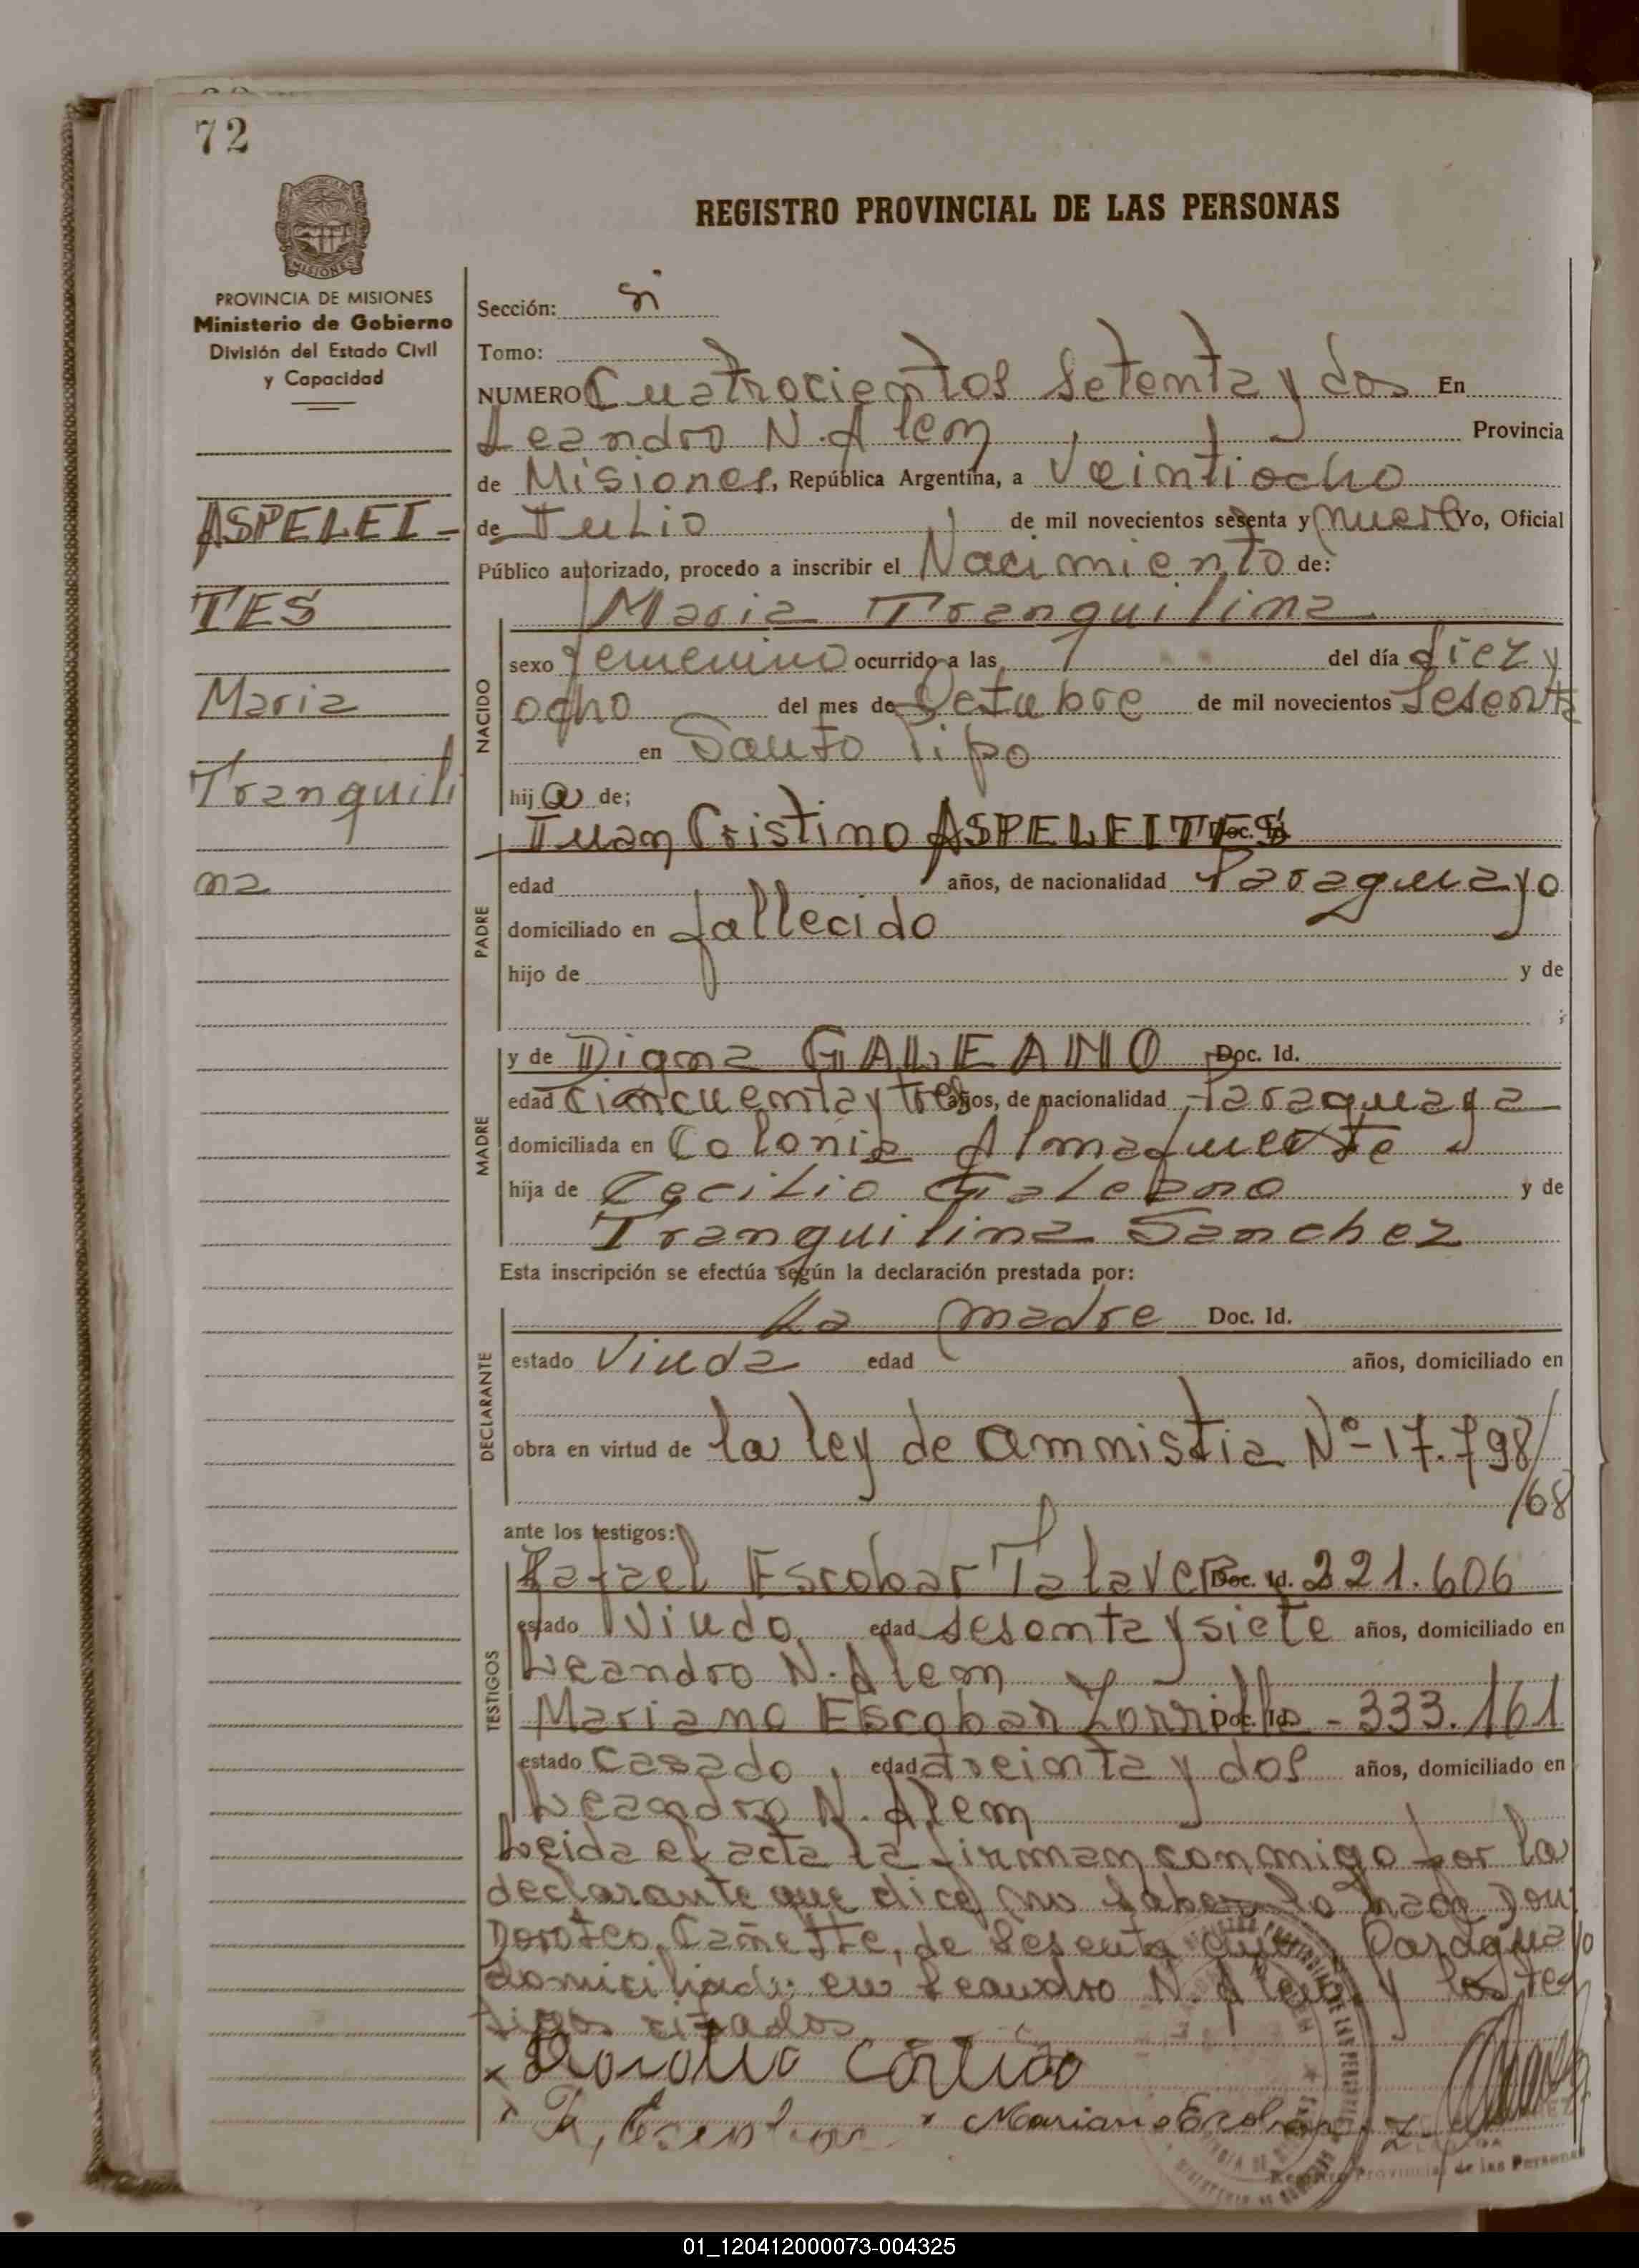 72
REGISTRO PROVINCIAL DE LAS PERSONAS
PROVINCIA DE MISIONES
Ministerio de Gobierno
División del Estado Civil
y Capacidad
ASPELEI-
TES
Maria
Tranquili
na
Sección:
Tomo:
NUMERO Cuatrocientos Setenta y dos En
Leandro N. Alem Provincia
de Misiones, República Argentina, a Veintiocho
de Julio de mil novecientos sesenta y nueve Yo, Oficial
Público autorizado, procedo a inscribir el Nacimiento de:
Maria Tranquilina
NACIDO
sexo femenino ocurrido a las del día diez y
ocho del mes de Octubre de mil novecientos Sesenta
en Santo Pipo
hija de;
PADRE
Juan Cristino ASPELEITES Doc. Id.
edad años, de nacionalidad Paraguayo
domiciliado en fallecido
hijo de y de
;
MADRE
y de Digna GALEANO Doc. Id.
edad Cincuenta y tres años, de nacionalidad Paraguaya
domiciliada en Colonia Almafuerte
hija de Cecilio Galeano y de
Tranquilina Sanchez
Esta inscripción se efectúa según la declaración prestada por:
DECLARANTE
La madre Doc. Id.
estado Viuda edad años, domiciliado en
obra en virtud de la ley de amnistia Nº-17.798/
/68
ante los testigos:
TESTIGOS
Rafael Escobar Talavera Doc. Id. 221.606
estado Viudo, edad sesenta y siete años, domiciliado en
Leandro N. Alem
Mariano Escobar Zorrilla Doc. Id. - 333.161
estado Casado, edad treinta y dos años, domiciliado en
Leandro N. Alem
Leida el acta la firman conmigo por la
declarante que dice no saber lo hace Don
Doroteo Cañette, de sesenta años, Paraguayo
domiciliado en Leandro N. Alem y los tes
tigos citados
x
x x Mariano Escobar Z.
Registro Provincial de las Personas
01_120412000073-004325